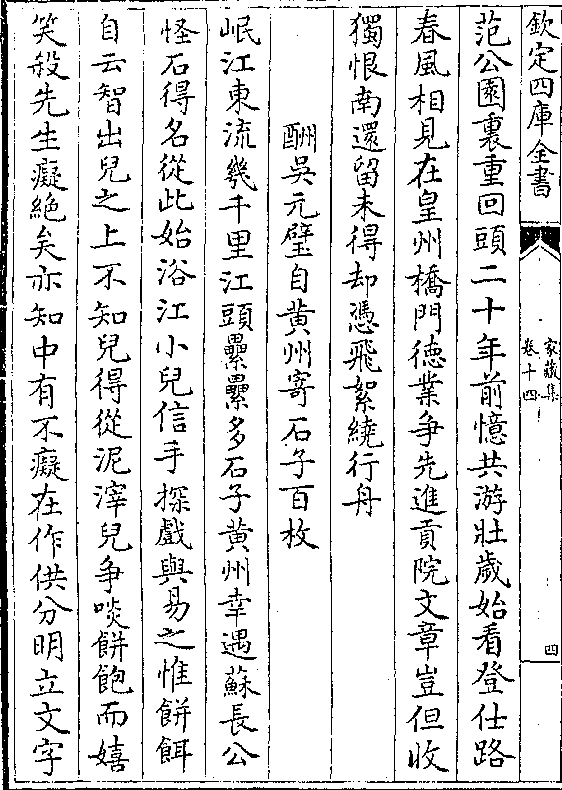 欽定四庫全書
家藏集
卷十四
四
范公園裏重回頭二十年前憶共游壯歲始看登仕路
春風相見在皇州橋門德業爭先進貢院文章豈但收
獨恨南還留未得却憑飛絮繞行舟
酬吳元璧自黄州寄石子百枚
岷江東流幾千里江頭纍纍多石子黄州幸遇蘇長公
怪石得名從此始浴江小兒信手探戲與易之惟餅餌
自云智出兒之上不知兒得從泥滓兒爭啖餅飽而嬉
笑殺先生癡絶矣亦知中有不癡在作供分明立文字